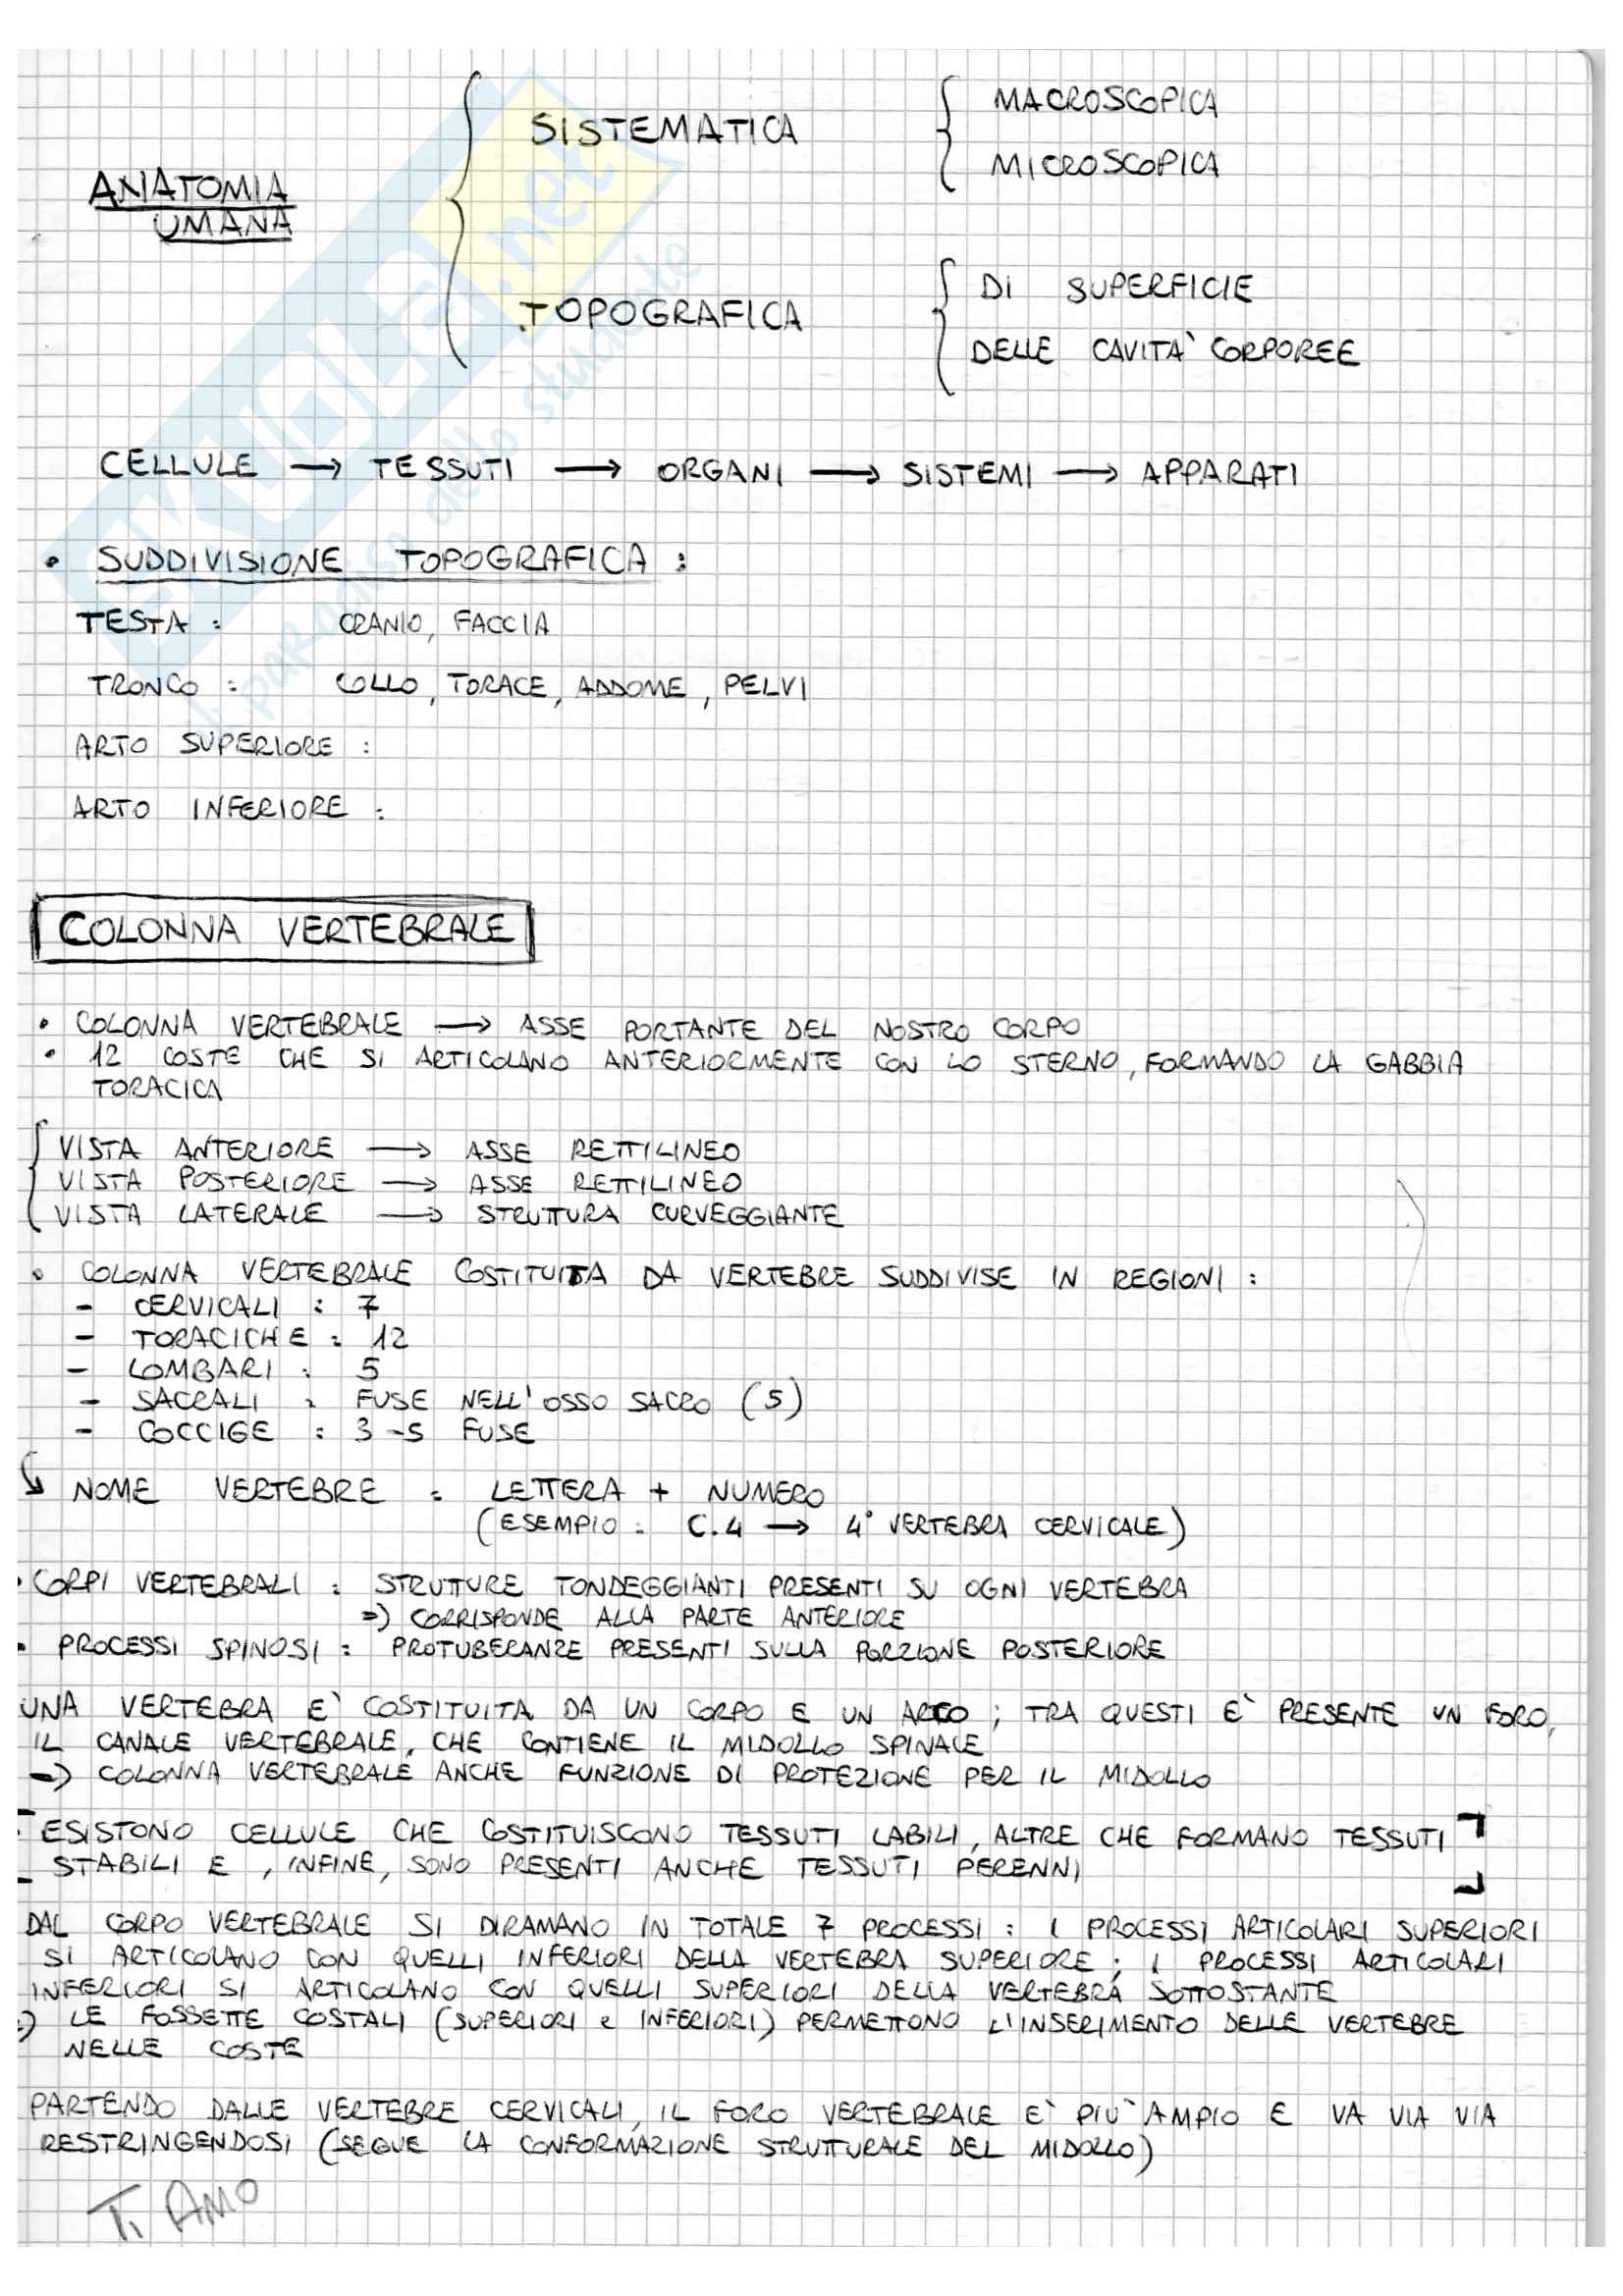 SISTEMATICA
MACROSCOPICA
MICROSCOPICA
ANATOMIA
UMANA
TOPOGRAFICA
DI SUPERFICIE
DELLE CAVITA' CORPOREE
SKUOLA.net
il paradiso dello studente
CELLULE → TESSUTI → ORGANI → SISTEMI → APPARATI
• SUDDIVISIONE TOPOGRAFICA :
TESTA : CRANIO, FACCIA
TRONCO : COLLO, TORACE, ADDOME, PELVI
ARTO SUPERIORE :
ARTO INFERIORE :
COLONNA VERTEBRALE
• COLONNA VERTEBRALE → ASSE PORTANTE DEL NOSTRO CORPO
• 12 COSTE CHE SI ARTICOLANO ANTERIORMENTE CON LO STERNO, FORMANDO LA GABBIA
TORACICA
VISTA ANTERIORE → ASSE RETTILINEO
VISTA POSTERIORE → ASSE RETTILINEO
VISTA LATERALE → STRUTTURA CURVEGGIANTE
• COLONNA VERTEBRALE COSTITUITA DA VERTEBRE SUDDIVISE IN REGIONI :
- CERVICALI : 7
- TORACICHE : 12
- LOMBARI : 5
- SACRALI : FUSE NELL'OSSO SACRO (5)
- COCCIGE : 3-5 FUSE
↳ NOME VERTEBRE : LETTERA + NUMERO
(ESEMPIO : C.4 → 4° VERTEBRA CERVICALE)
• CORPI VERTEBRALI : STRUTTURE TONDEGGIANTI PRESENTI SU OGNI VERTEBRA
⇒ CORRISPONDE ALLA PARTE ANTERIORE
• PROCESSI SPINOSI : PROTUBERANZE PRESENTI SULLA PORZIONE POSTERIORE
UNA VERTEBRA E' COSTITUITA DA UN CORPO E UN ARCO ; TRA QUESTI E' PRESENTE UN FORO,
IL CANALE VERTEBRALE, CHE CONTIENE IL MIDOLLO SPINALE
⇒ COLONNA VERTEBRALE ANCHE FUNZIONE DI PROTEZIONE PER IL MIDOLLO
[ESISTONO CELLULE CHE COSTITUISCONO TESSUTI LABILI, ALTRE CHE FORMANO TESSUTI
STABILI E, INFINE, SONO PRESENTI ANCHE TESSUTI PERENNI]
DAL CORPO VERTEBRALE SI DIRAMANO IN TOTALE 7 PROCESSI : I PROCESSI ARTICOLARI SUPERIORI
SI ARTICOLANO CON QUELLI INFERIORI DELLA VERTEBRA SUPERIORE ; I PROCESSI ARTICOLARI
INFERIORI SI ARTICOLANO CON QUELLI SUPERIORI DELLA VERTEBRA SOTTOSTANTE
⇒ LE FOSSETTE COSTALI (SUPERIORI e INFERIORI) PERMETTONO L'INSERIMENTO DELLE VERTEBRE
NELLE COSTE
PARTENDO DALLE VERTEBRE CERVICALI, IL FORO VERTEBRALE E' PIU' AMPIO E VA VIA VIA
RESTRINGENDOSI (SEGUE LA CONFORMAZIONE STRUTTURALE DEL MIDOLLO)
Ti AMO